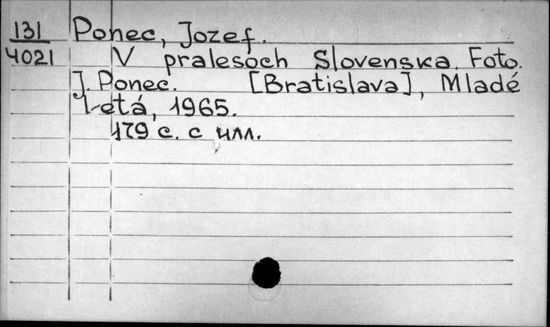 131 Ponec, Jozef.
4021 V pralesoch Slovenska. Foto.
J. Ponec. [Bratislava], Mladé
letá, 1965.
179 с. с илл.